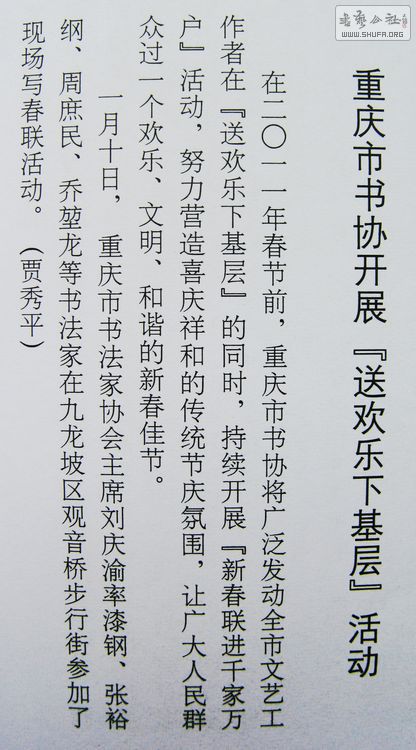 重庆市书协开展『送欢乐下基层』活动
在二〇一一年春节前，重庆市书协将广泛发动全市文艺工
作者在『送欢乐下基层』的同时，持续开展『新春联进千家万
户』活动，努力营造喜庆祥和的传统节庆氛围，让广大人民群
众过一个欢乐、文明、和谐的新春佳节。
一月十日，重庆市书法家协会主席刘庆渝率漆钢、张裕
纲、周庶民、乔堃龙等书法家在九龙坡区观音桥步行街参加了
现场写春联活动。（贾秀平）
WWW.SHUFA.ORG